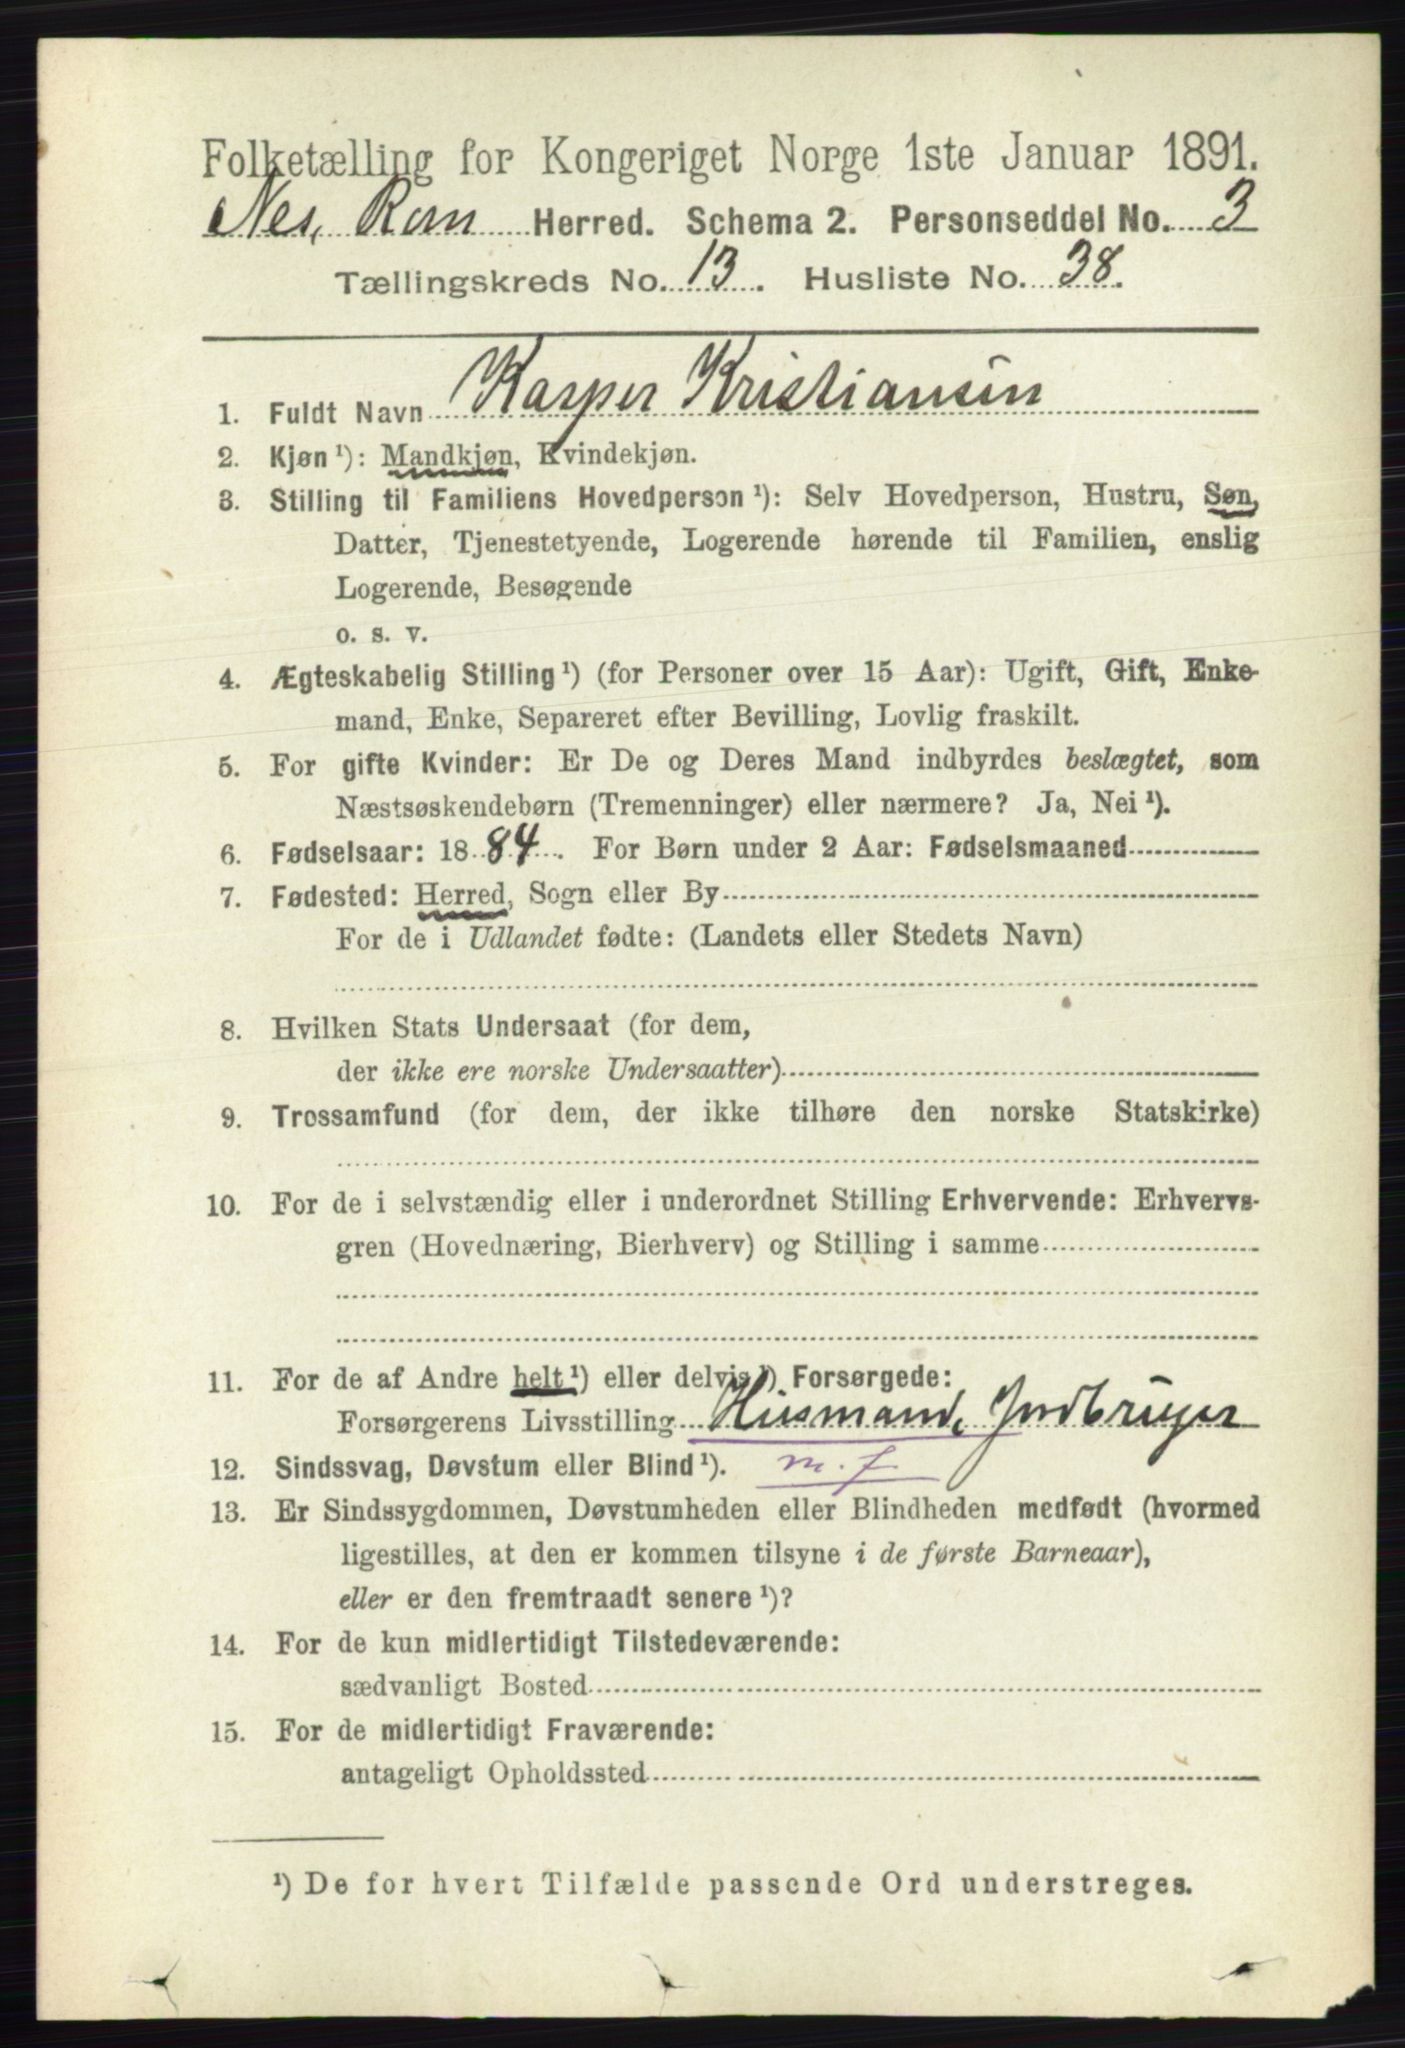 Folketælling for Kongeriget Norge 1ste Januar 1891.
Nes, Rom Herred. Schema 2. Personseddel No. 3
Tællingskreds No. 13. Husliste No. 38.
1. Fuldt Navn Kasper Kristiansen
2. Kjøn ¹): Mandkjøn, Kvindekjøn.
3. Stilling til Familiens Hovedperson ¹): Selv Hovedperson, Hustru, Søn,
Datter, Tjenestetyende, Logerende hørende til Familien, enslig
Logerende, Besøgende
o. s. v.
4. Ægteskabelig Stilling ¹) (for Personer over 15 Aar): Ugift, Gift, Enke-
mand, Enke, Separeret efter Bevilling, Lovlig fraskilt.
5. For gifte Kvinder: Er De og Deres Mand indbyrdes beslægtet, som
Næstsøskendebørn (Tremenninger) eller nærmere? Ja, Nei ¹).
6. Fødselsaar: 1884. For Børn under 2 Aar: Fødselsmaaned
7. Fødested: Herred, Sogn eller By
For de i Udlandet fødte: (Landets eller Stedets Navn)
8. Hvilken Stats Undersaat (for dem,
der ikke ere norske Undersaatter)
9. Trossamfund (for dem, der ikke tilhøre den norske Statskirke)
10. For de i selvstændig eller i underordnet Stilling Erhvervende: Erhvervs-
gren (Hovednæring, Bierhverv) og Stilling i samme
11. For de af Andre helt ¹) eller delvis ¹) Forsørgede:
Forsørgerens Livsstilling Husmand, Jordbruger
12. Sindssvag, Døvstum eller Blind ¹). m. f.
13. Er Sindssygdommen, Døvstumheden eller Blindheden medfødt (hvormed
ligestilles, at den er kommen tilsyne i de første Barneaar),
eller er den fremtraadt senere ¹)?
14. For de kun midlertidigt Tilstedeværende:
sædvanligt Bosted
15. For de midlertidigt Fraværende:
antageligt Opholdssted
¹) De for hvert Tilfælde passende Ord understreges.